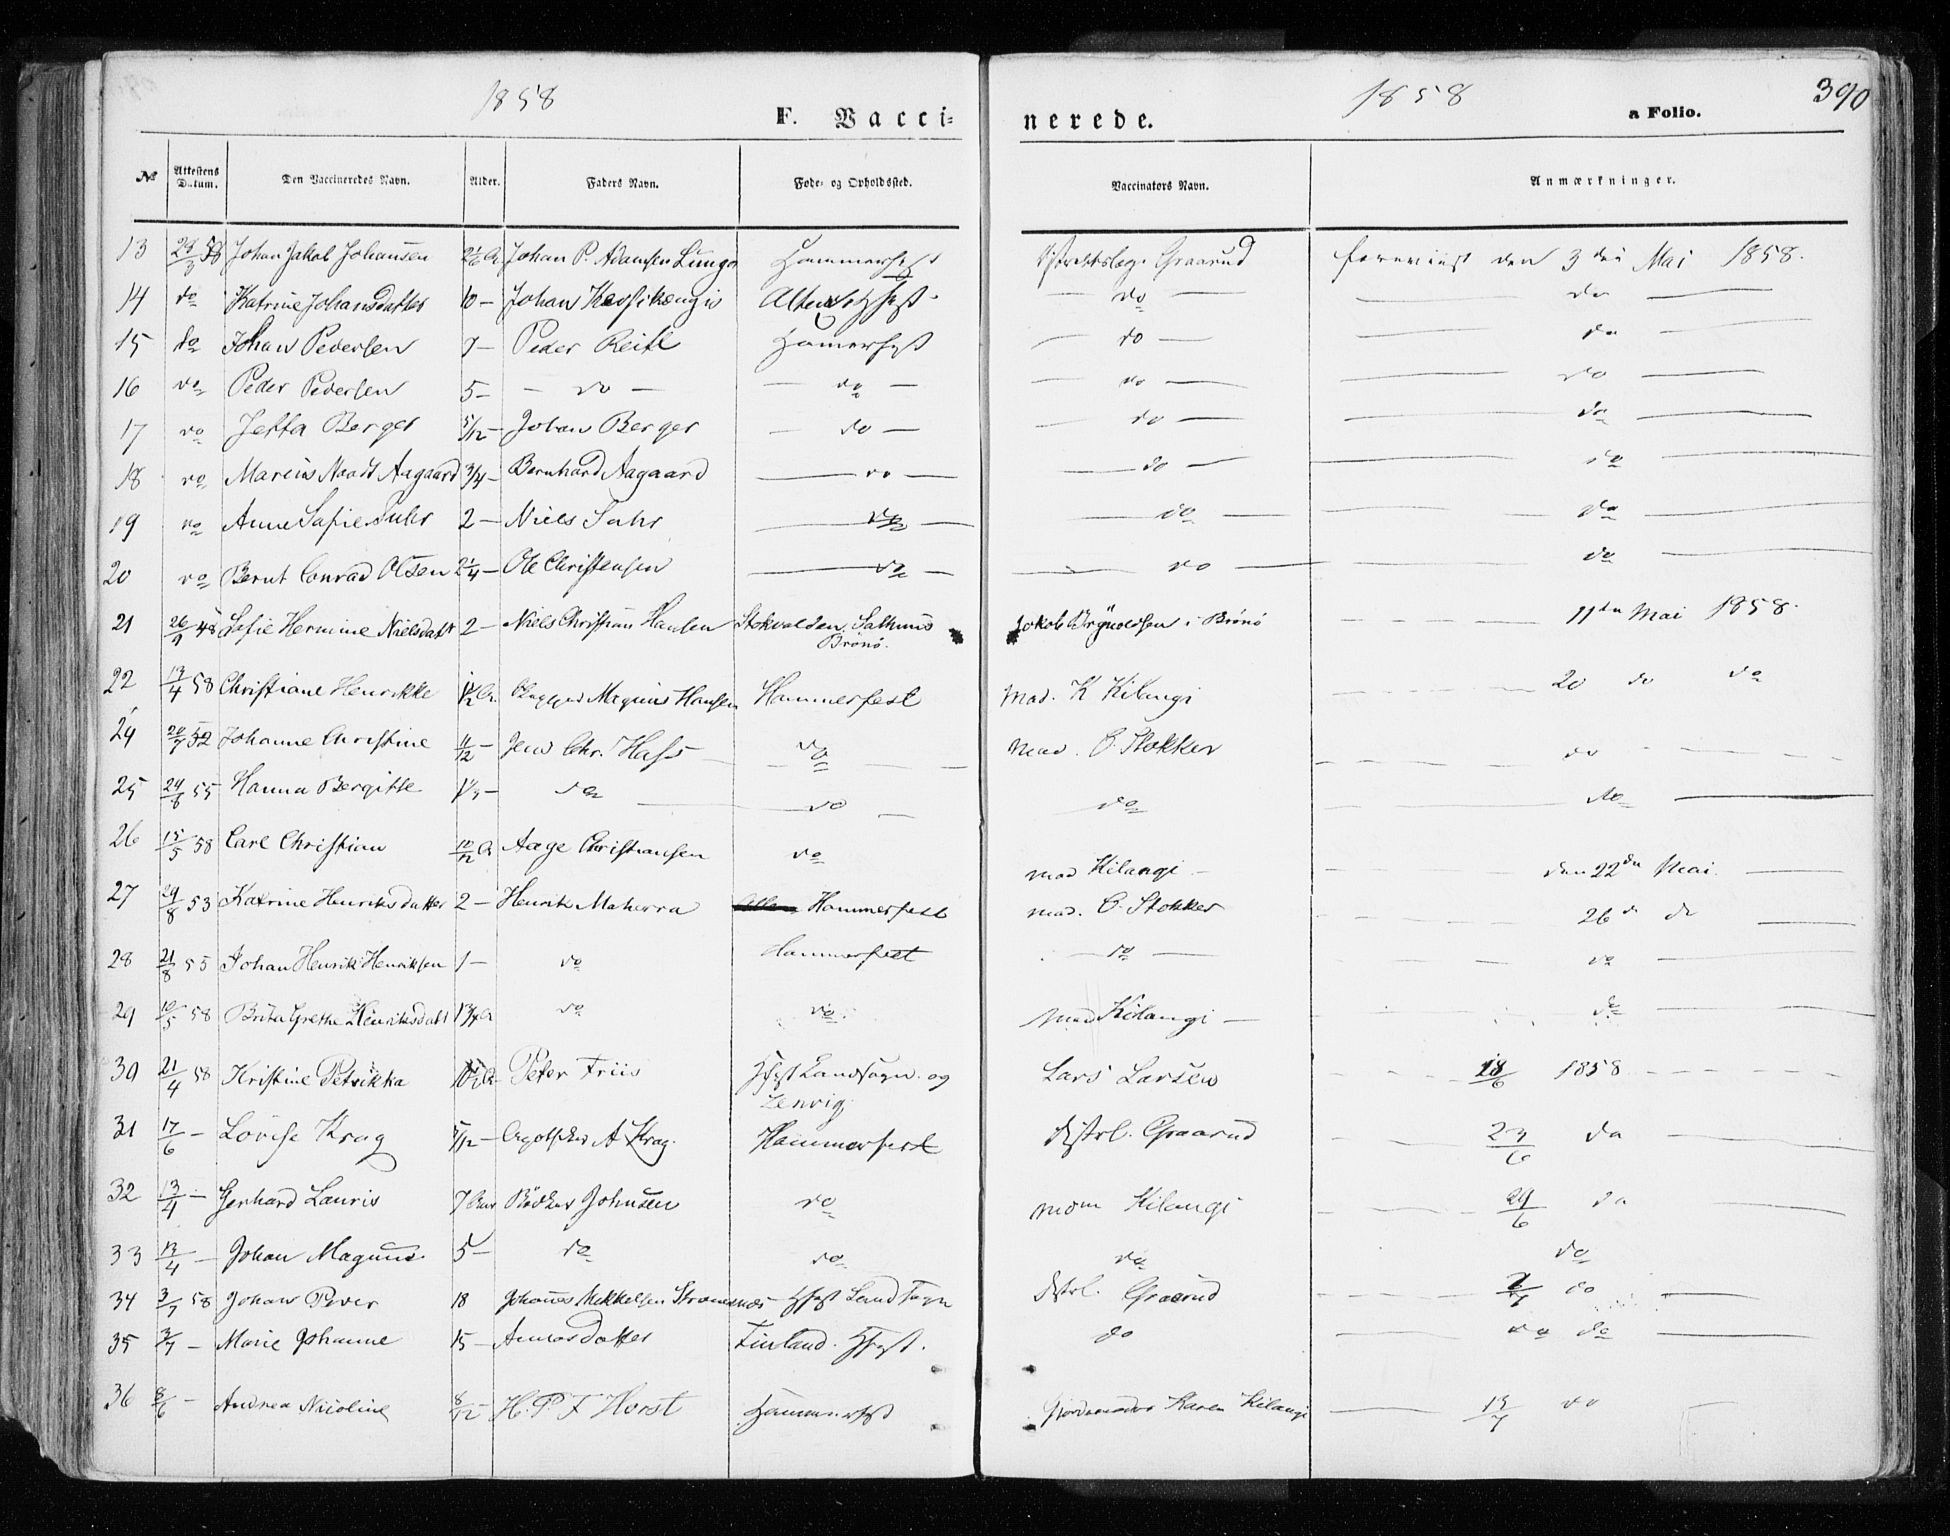 1858 1858 390
F. Vacci- nerede. a Folio.
№ Attestens Datum. Den Vaccineredes Navn. Alder. Faders Navn. Føde- og Opholdssted. Vaccinators Navn. Anmærkninger.
13 29/3 58 Johan Jakob Johansen Johan P. Adamsen Hammerfest Graarud forevist den 3die Mai 1858.
14 do Katrine Johansdatter 10 — Johan do do
15 do Johan Pedersen 7 — Peder Hamerfest do do
16 do Peder Pedersen 5 — do — do do do
17 do Jetta Berger 5/12 — Johan Berger do do do
18 do Marcus Aagaard 3/4 — Bernhard Aagaard do do do
19 do Anne Sofie 2 — Niels do do do
20 do Bernt Conrad Olsen 2 1/4 — Ole Christensen do do do
21 Sofie Hermine Nielsdatt 2 — Niels Christian Hansen Brønø. Jakob i Brønø 11te Mai 1858.
22 13/4 58 Christiane Henrikke Magnus Hansen Hammerfest Mad. K Kilangi 20 do do
24 Johanne Christine 11/12 — Jens Chr. Hass do Mad. C. Stokker do
25 55 Hanna Bergitte do do do do
26 15/5 58 Carl Christian 10/12 Aage Christiansen do mad Kilangi den 22de Mai.
27 29/8 53 Katrine Henriksdatter 2 — Henrik Hammerfest mad. C. Stokker 26 do
28 21/8 55 Johan Henrik Henriksen 1 — do Hammerfest do do
29 58 Brita Grethe Henriksdatt do do mad Kilangi do
30 21/4 58 Kristine Petrikka Peter Friis Hfest Landsogn og Lars Larsen 18/6 1858
31 17/6 — Lovise Krag 5/12 — A Krag. Hammerfest distrl. Graarud 23/6 do
32 13/4 — Gerhard Lauris 7 Bødker Johnsen do Kilangi 29/6 do
33 13/4 — Johan Magnus 5 — do do do do
34 3/7 58 Johan Peder 18 Johannes Mikkelsen Hfest Landsogn distrl. Graarud do
35 3/7 — Marie Johanne 15 — Finland. Hfest. do do do
36 8/6 — Andrea Nicoline 8/12 — H. P. F Horst Hammerfest Karen Kilangi 13/7 do